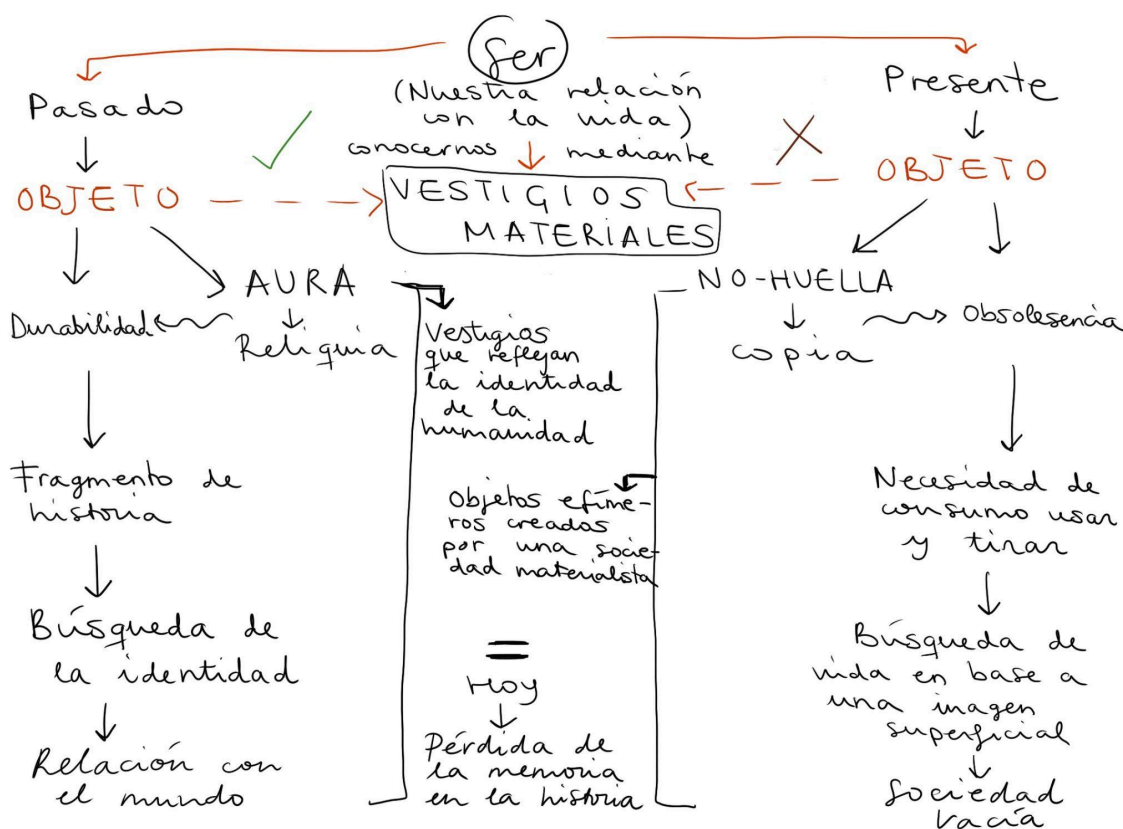 Ser
(Nuestra relación
con la vida)
conocernos mediante
VESTIGIOS
MATERIALES
Pasado
OBJETO
AURA
Reliquia
Durabilidad
Fragmento de
historia
Búsqueda de
la identidad
Relación con
el mundo
Vestigios
que reflejan
la identidad
de la
humanidad
Objetos efíme-
ros creados
por una socie-
dad materialista
=
Hoy
Pérdida de
la memoria
en la historia
Presente
OBJETO
NO-HUELLA
copia
Obsolesencia
Necesidad de
consumo usar
y tirar
Búsqueda de
vida en base a
una imagen
superficial
Sociedad
vacía